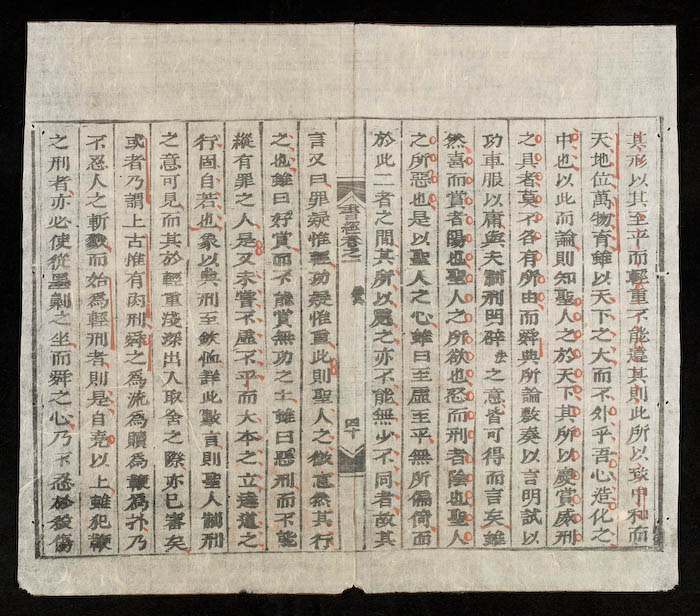 其形以其至平而輕重不能違其則此所以致中和而
天地位萬物育雖以天下之大而不外乎吾心造化之
中也以此而論則知聖人之於天下其所以慶賞威刑
之具者莫不各有所由而舜典所論敷奏以言明試以
功車服以庸與夫制刑明辟之意皆可得而言矣雖
然喜而賞者陽也聖人之所欲也怒而刑者陰也聖人
之所惡也是以聖人之心雖曰至虛至平無所偏倚而
於此二者之間其所以處之亦不能無少不同者故其
書經卷之一
四十
言又曰罪疑惟輕功疑惟重此則聖人之微意然其行
之也雖曰好賞而不能賞無功之士雖曰惡刑而不能
縱有罪之人是又未嘗不虛不平而大本之立達道之
行固自若也象以典刑至欽恤詳此數言則聖人制刑
之意可見而其於輕重淺深出入取舍之際亦已審矣
或者乃謂上古惟有肉刑舜之爲流爲贖爲鞭爲扑乃
不忍人之斬戮而始爲輕刑者則是自堯以上雖犯鞭
之刑者亦必使從墨劓之坐而舜之心乃不忍於殺傷